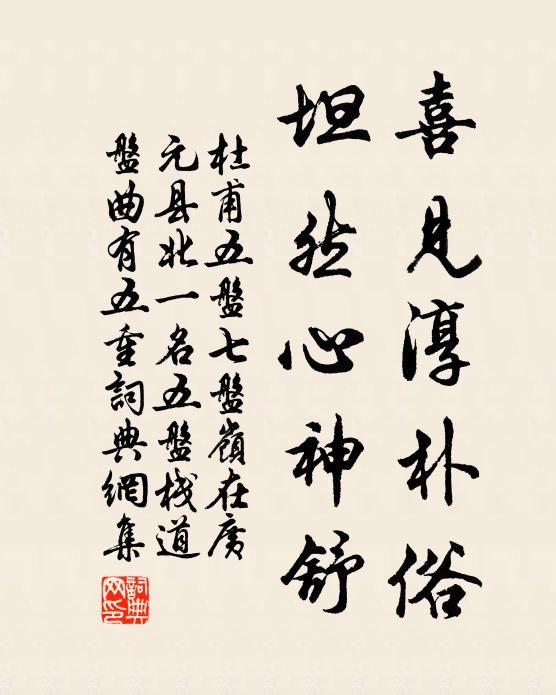 喜見淳朴俗
坦然心神舒
杜甫五盤七盤嶺在廣
元县北一名五盤栈道
盤曲有五重詞典網集
詞典网印